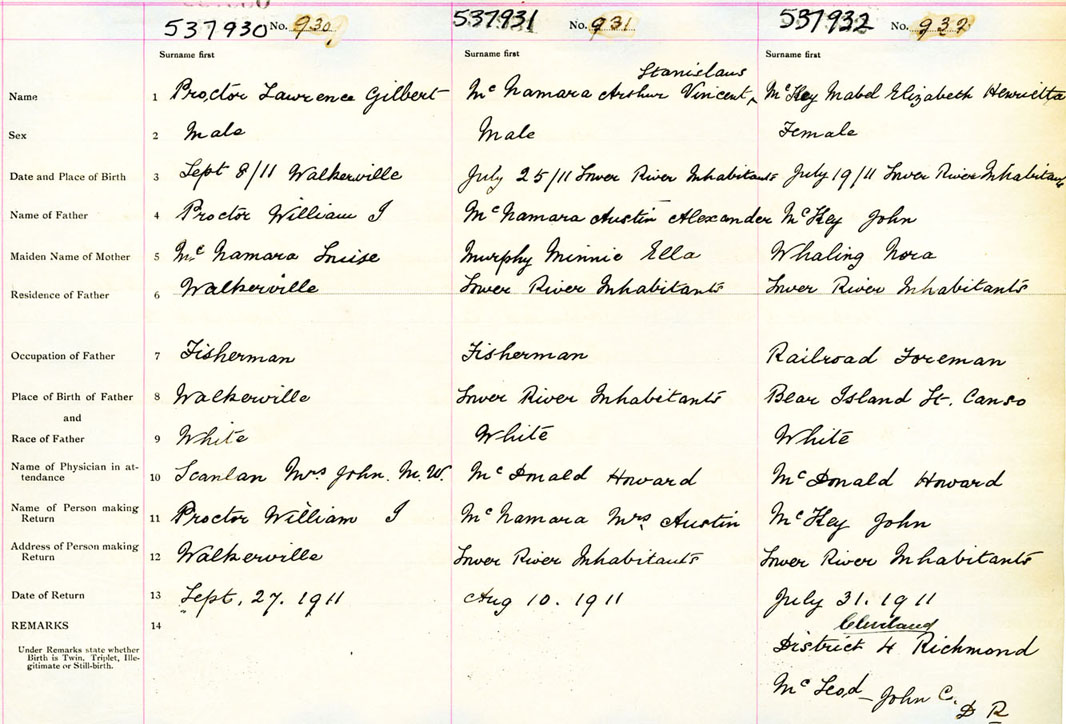 537930 No. 930 537931 No. 931 537932 No. 932
Surname first Surname first Surname first
Stanislaus
Name 1 Proctor Lawrence Gilbert McNamara Arthur Vincent McKey Mabel Elizabeth Henrietta
Sex 2 Male Male Female
Date and Place of Birth 3 Sept 8/11 Walkerville July 25/11 Lower River Inhabitants July 19/11 Lower River Inhabitants
Name of Father 4 Proctor William J McNamara Austin Alexander McKey John
Maiden Name of Mother 5 McNamara Louise Murphy Minnie Ella Whaling Nora
Residence of Father 6 Walkerville Lower River Inhabitants Lower River Inhabitants
Occupation of Father 7 Fisherman Fisherman Railroad Foreman
Place of Birth of Father 8 Walkerville Lower River Inhabitants Bear Island St. Canso
and
Race of Father 9 White White White
Name of Physician in at-
tendance 10 Scanlan Mrs John. M.W. McDonald Howard McDonald Howard
Name of Person making
Return 11 Proctor William J McNamara Mrs Austin McKey John
Address of Person making
Return 12 Walkerville Lower River Inhabitants Lower River Inhabitants
Date of Return 13 Sept. 27. 1911 Aug 10. 1911 July 31. 1911
REMARKS 14 Cleveland
Under Remarks state whether
Birth is Twin, Triplet, Ille-
gitimate or Still-birth.
District 4 Richmond
McLeod John C.
D R